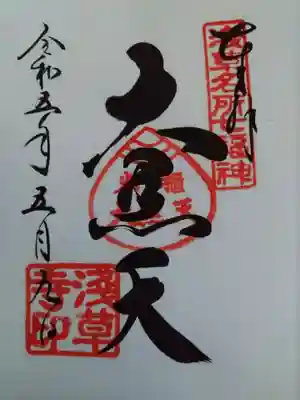 奉拝
浅草名所七福神
大黒天
令和五年五月九日
浅草寺印